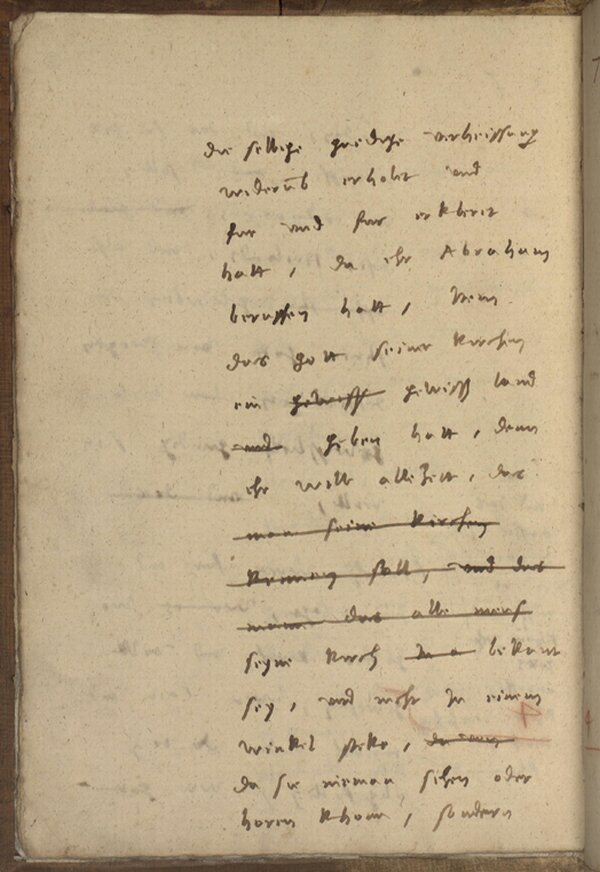 die selbige gnedige verheissung
widerumb erholet und
fur und fur erkleret
hatt, da ehr Abraham
beruffen hatt, Item
das gott seiner kirchen
ein gewiss gewiss land
und geben hatt, denn
ehr will allezeit, das
man seine kirchen
kennen soll, und das
das alle mens
seyne kirch bekant
sey, und nicht in einem
winkel steke,
da sie nieman sehen oder
horen khone, sondern